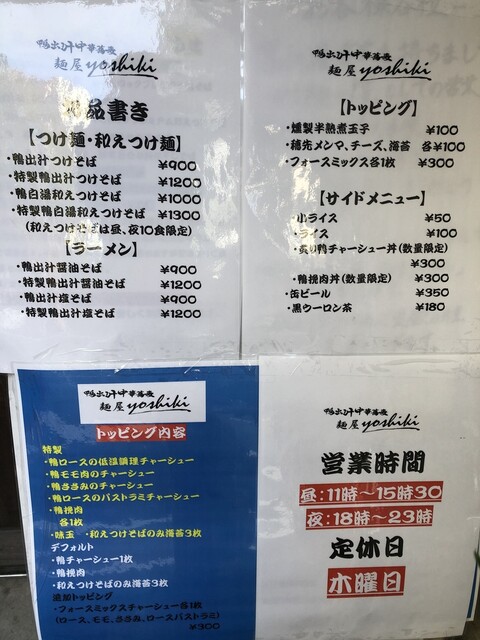 鴨出汁中華蕎麦
麺屋yoshiki
お品書き
【つけ麺・和えつけ麺】
・鴨出汁つけそば ¥900
・特製鴨出汁つけそば ¥1200
・鴨白湯和えつけそば ¥1000
・特製鴨白湯和えつけそば ¥1300
(和えつけそばは昼、夜10食限定)
【ラーメン】
・鴨出汁醤油そば ¥900
・特製鴨出汁醤油そば ¥1200
・鴨出汁塩そば ¥900
・特製鴨出汁塩そば ¥1200
鴨出汁中華蕎麦
麺屋yoshiki
【トッピング】
・燻製半熟煮玉子 ¥100
・穂先メンマ、チーズ、海苔 各¥100
・フォースミックス各1枚 ¥300
【サイドメニュー】
・小ライス ¥50
・ライス ¥100
・炙り鴨チャーシュー丼(数量限定)
¥300
・鴨挽肉丼(数量限定) ¥300
・缶ビール ¥350
・黒ウーロン茶 ¥180
鴨出汁中華蕎麦
麺屋yoshiki
トッピング内容
特製
・鴨ロースの低温調理チャーシュー
・鴨モモ肉のチャーシュー
・鴨ささみのチャーシュー
・鴨ロースのパストラミチャーシュー
・鴨挽肉
各1枚
・味玉 ・和えつけそばのみ海苔3枚
デフォルト
・鴨チャーシュー1枚
・鴨挽肉
・和えつけそばのみ海苔3枚
追加トッピング
・フォースミックスチャーシュー各1枚
(ロース、モモ、ささみ、ロースパストラミ)
¥300
鴨出汁中華蕎麦
麺屋yoshiki
営業時間
昼:11時〜15時30
夜:18時〜23時
定休日
木曜日